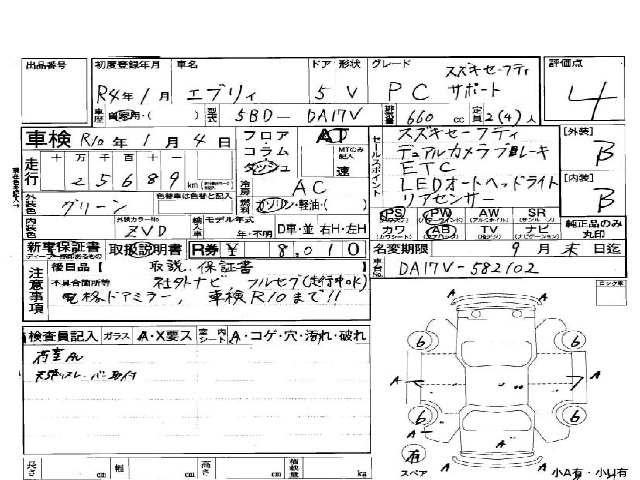 出品番号 初度登録年月 車名 ドア 形状 グレード 評価点
R4年1月 エブリィ 5 V PC スズキセーフティ サポート 4
車歴 自家用・( ) 型式 5BD-DA17V 排気量 660 cc 定員 2(4)人
車検 R10年1月4日 フロア コラム ダッシュ AT MTのみ記入 速
走行 十万 万 千 百 十 25689 km
セールスポイント スズキセーフティ
デュアルカメラブレーキ
ETC
LEDオートヘッドライト
リアセンサー
[外装] B
[内装] B
外装色 グリーン 色替車は色替と記入 冷房 AC 燃料 ガソリン・軽油・( )
内装色 外装カラーNo ZVD 輸入車 モデル年式 年・不明 D車・並 右H・左H
PS PW AW SR
カワ AB TV ナビ 純正品のみ丸印
新車保証書 取扱説明書 R券 ¥ 8,010 名変期限 9月末日迄
注意事項 後日品 【 取説、保証書
不具合箇所等 社外ナビ フルセグ(走行中OK)
電格ドアミラー, 車検R10まで!!
車台No. DA17V-582102
検査員記入 ガラス A・X要ス 室内シート A・コゲ・穴・汚れ・破れ
荷室AU
長さ cm 幅 cm 高さ cm 積載量 kg
A A
6 6
A A
6 6
A A A
有 スペア A A 小A有・小U有